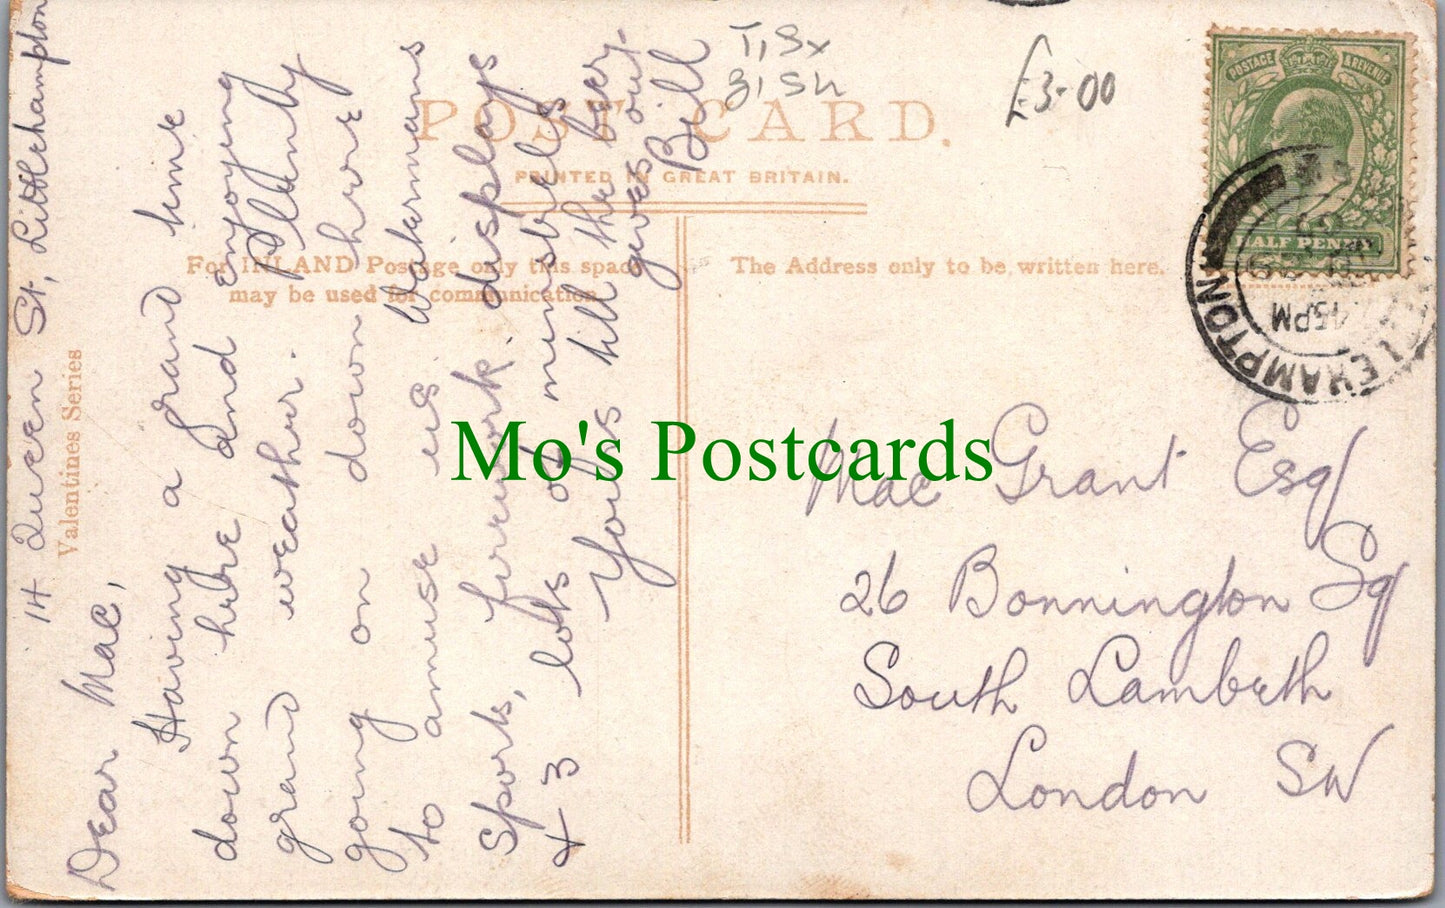 T, Sx
3, SH
£3-00
POST CARD.
PRINTED IN GREAT BRITAIN.
For INLAND Postage only this space
may be used for communication.
The Address only to be written here.
POSTAGE & REVENUE
HALF PENNY
45PM
Valentines Series
14 Queen St, Littlehampton
Dear Mac,
Having a grand time
down here and enjoying
grand weather. Plenty
going on down here
to amuse us Watermans
Sports, firework displays
& 3 lots of minstrels
Yours till the beer
gives out,
Bill
Mac Grant Esq
26 Bonnington Sq
South Lambeth
London SW
Mo's Postcards